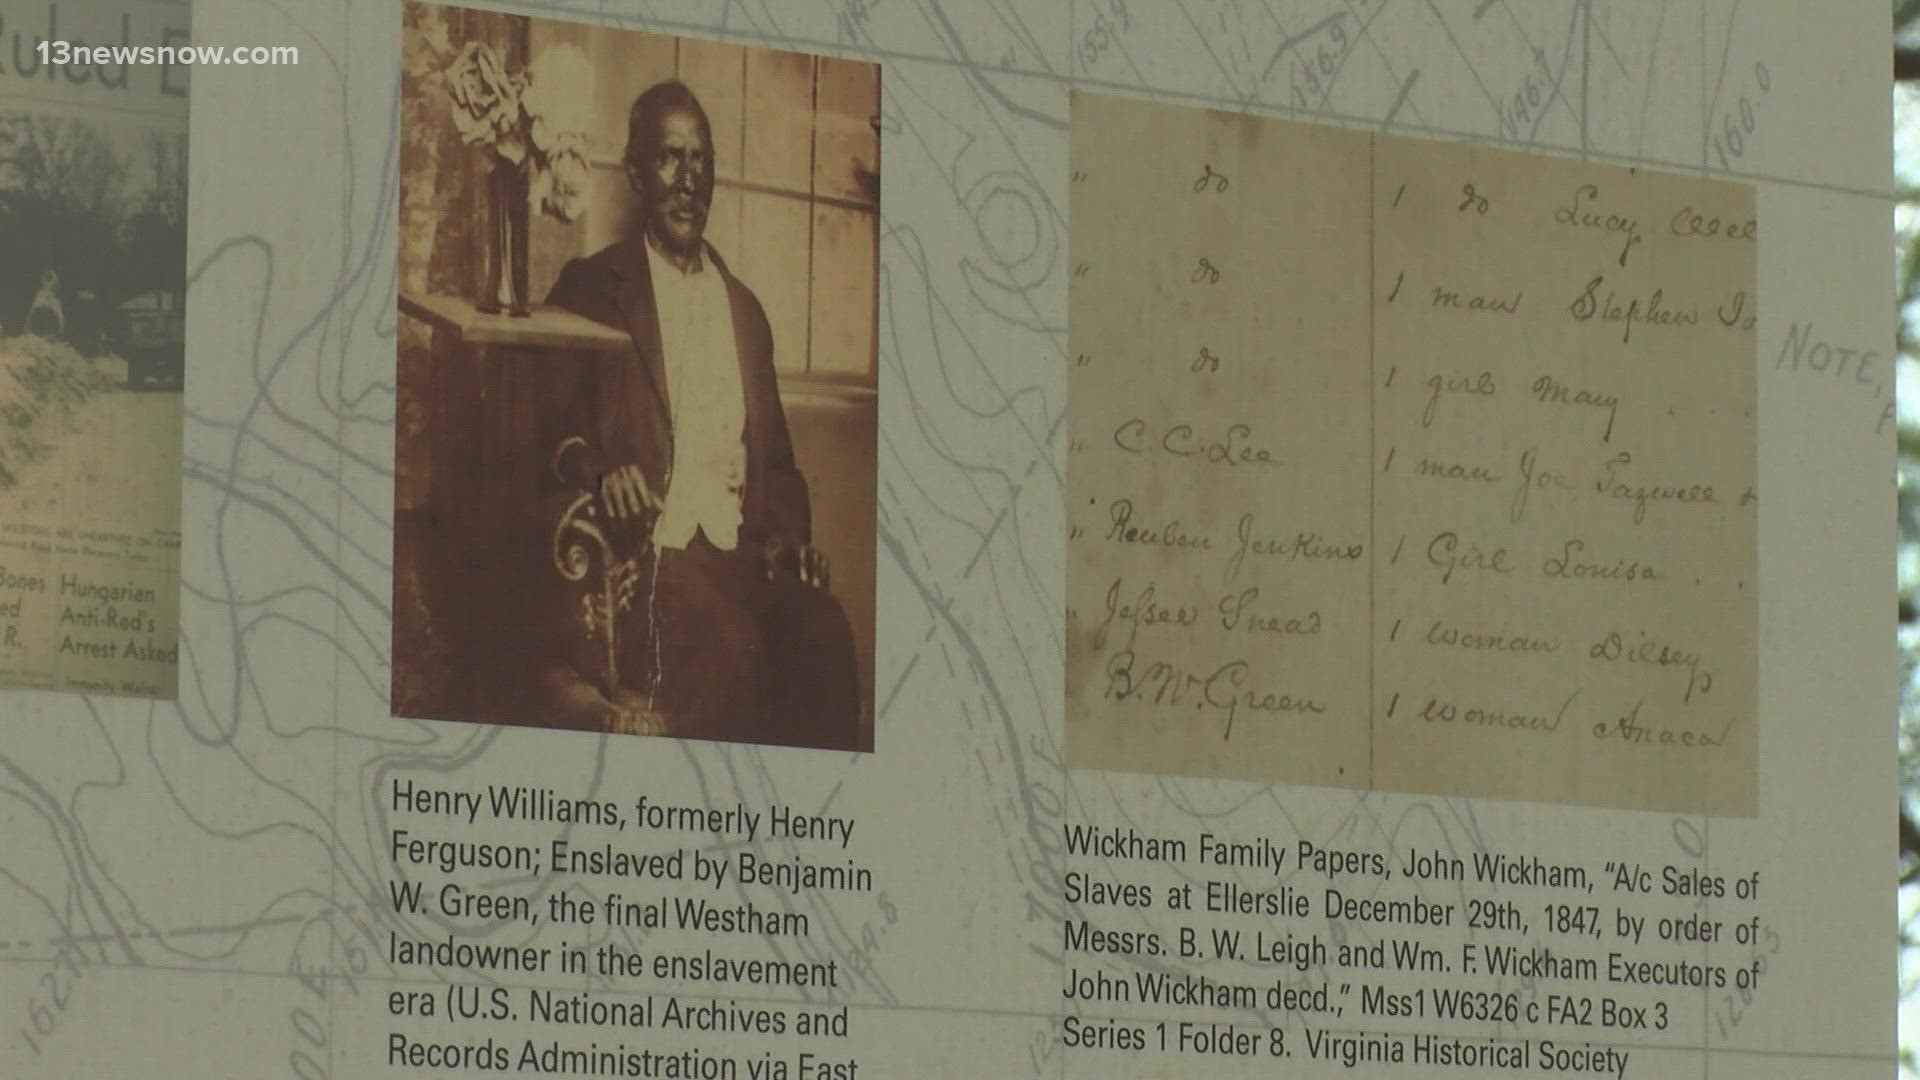 13newsnow.com
Ruled
Bones
Hungarian
Anti-Red's
Arrest Asked
R.
155.9
156.9
146.7
160.0
NOTE,
" do 1 do Lucy
" do 1 man Stephen
" do 1 girl Mary . . .
" C. C. Lee 1 man Joe Tazwell
" Reuben Jenkins 1 Girl Louisa . .
" Jessee Snead 1 woman Dilsey
B. W. Green 1 woman Anaca
Henry Williams, formerly Henry
Ferguson; Enslaved by Benjamin
W. Green, the final Westham
landowner in the enslavement
era (U.S. National Archives and
Records Administration via East
Wickham Family Papers, John Wickham, “A/c Sales of
Slaves at Ellerslie December 29th, 1847, by order of
Messrs. B. W. Leigh and Wm. F. Wickham Executors of
John Wickham decd.,” Mss1 W6326 c FA2 Box 3
Series 1 Folder 8. Virginia Historical Society